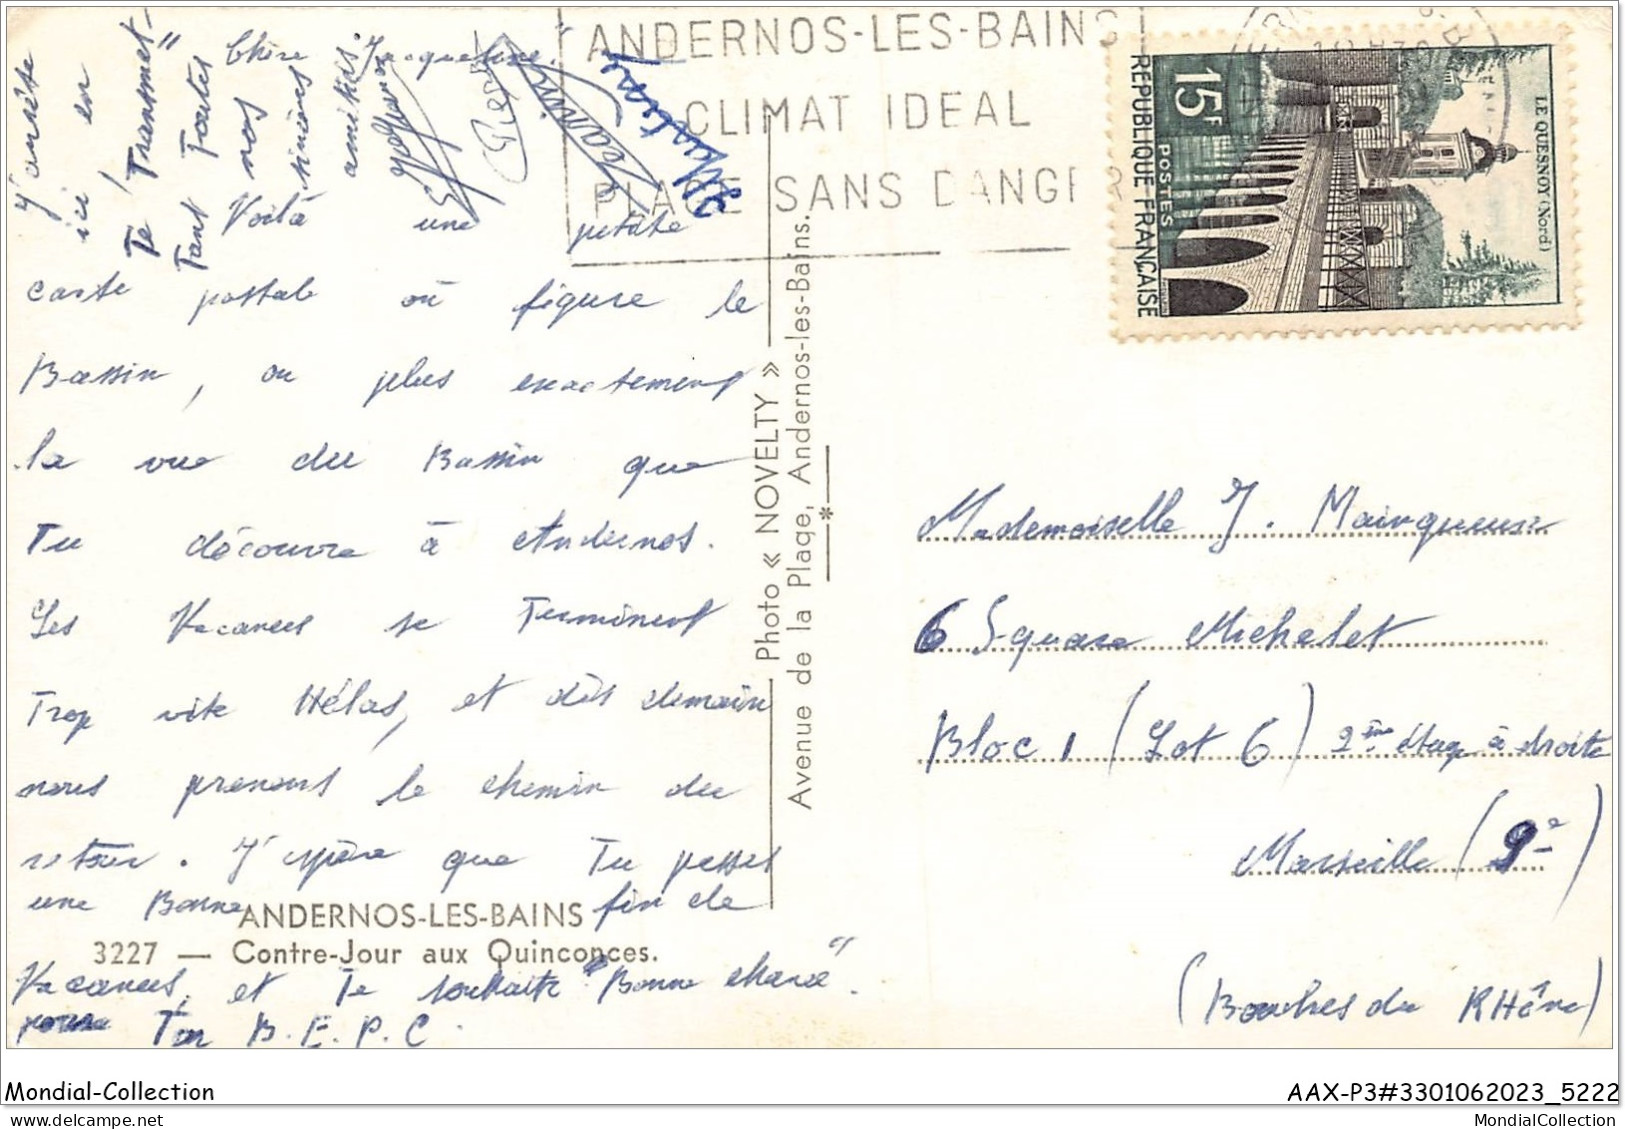 Chère Jacqueline.
Voilà une petite
carte postale où figure le
Bassin, ou plus exactement
la vue du Bassin que
Tu découvre à Andernos.
Les Vacances se Terminent
Trop vite Hélas, et dès demain
nous prenons le chemin du
retour. J'espère que Tu passes
une Bonne fin de
Vacances, et Te souhaite "Bonne chance".
pour Ton B.E.P.C.
J'arrête
ici en
Te "Transmet-
Tant Toutes
nos
sincères
amitiés.
ANDERNOS-LES-BAINS
3227 — Contre-Jour aux Quinconces.
Photo « NOVELTY »
Avenue de la Plage, Andernos-les-Bains.
ANDERNOS-LES-BAINS
CLIMAT IDEAL
PLAGE SANS DANGER
15F
POSTES
REPUBLIQUE FRANÇAISE
LE QUESNOY (Nord)
Mademoiselle J.
6 Square Michelet
Bloc 1 (Lot 6) 2ème étage à droite
Marseille (9e)
(Bouches du RHône)
Mondial-Collection
AAX-P3#3301062023_5222
MondialCollection
MondialCollection